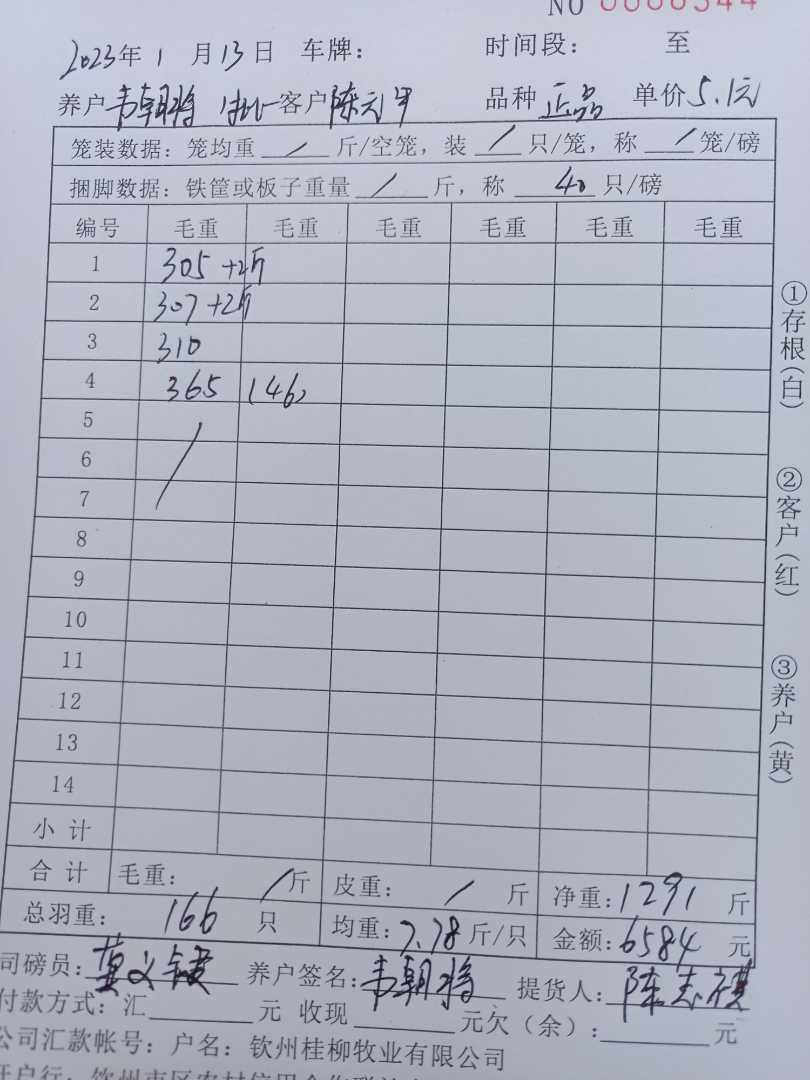 NO 0000344
2023年 1 月 13 日 车牌： 时间段： 至
养户 韦朝将 客户 陈元 品种 正品 单价 5.1元
笼装数据：笼均重 / 斤/空笼，装 / 只/笼，称 / 笼/磅
捆脚数据：铁筐或板子重量 / 斤，称 40 只/磅
编号 毛重 毛重 毛重 毛重 毛重 毛重
1 305 +2斤
2 307 +2斤
3 310
4 365 (46)
5 /
6
7
8
9
10
11
12
13
14
小 计
合 计 毛重： / 斤 皮重： / 斤 净重：1291 斤
总羽重： 166 只 均重：7.78 斤/只 金额：6584 元
司磅员： 养户签名：韦朝将 提货人：陈志祺
付款方式：汇 元 收现 元欠（余）： 元
公司汇款帐号：户名：钦州桂柳牧业有限公司
开户行：钦州市区农村信用合作联社
①存根（白） ②客户（红） ③养户（黄）